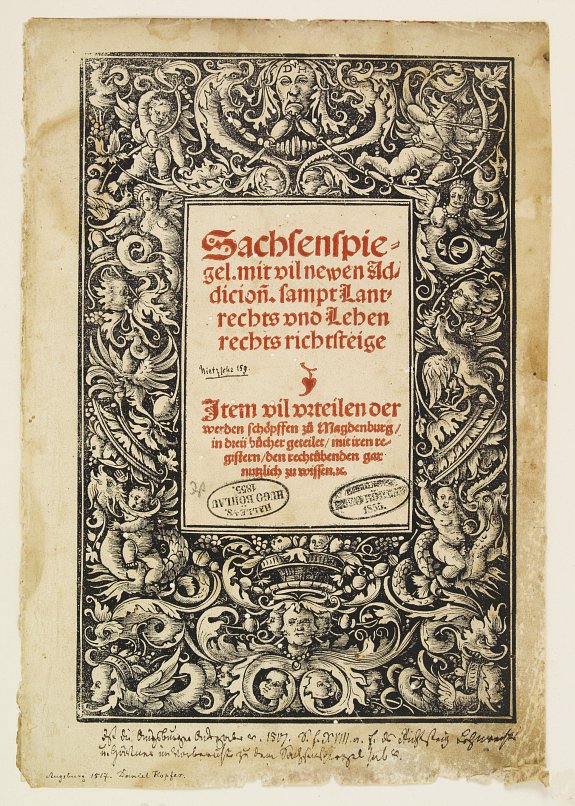 Sachsenspie-
gel. mit vil newen Ad/
dicioñ. sampt Lant-
rechts vnd Lehen
rechts richtsteige
Nietzsche 159.
Item vil vrteilen der
werden schöpffen zů Magdenburg/
in dreü bücher geteilet/ mit iren re-
gistern/ den rechtübenden gar
nutzlich zu wissen. ꝛc.
HALLE A/S.
HUGO BÖHLAU
1855.
Ist die Augsburger Ausgabe v. 1517. S. f. XVIII. u. f. des
Augsburg 1517. Daniel Hopfer.